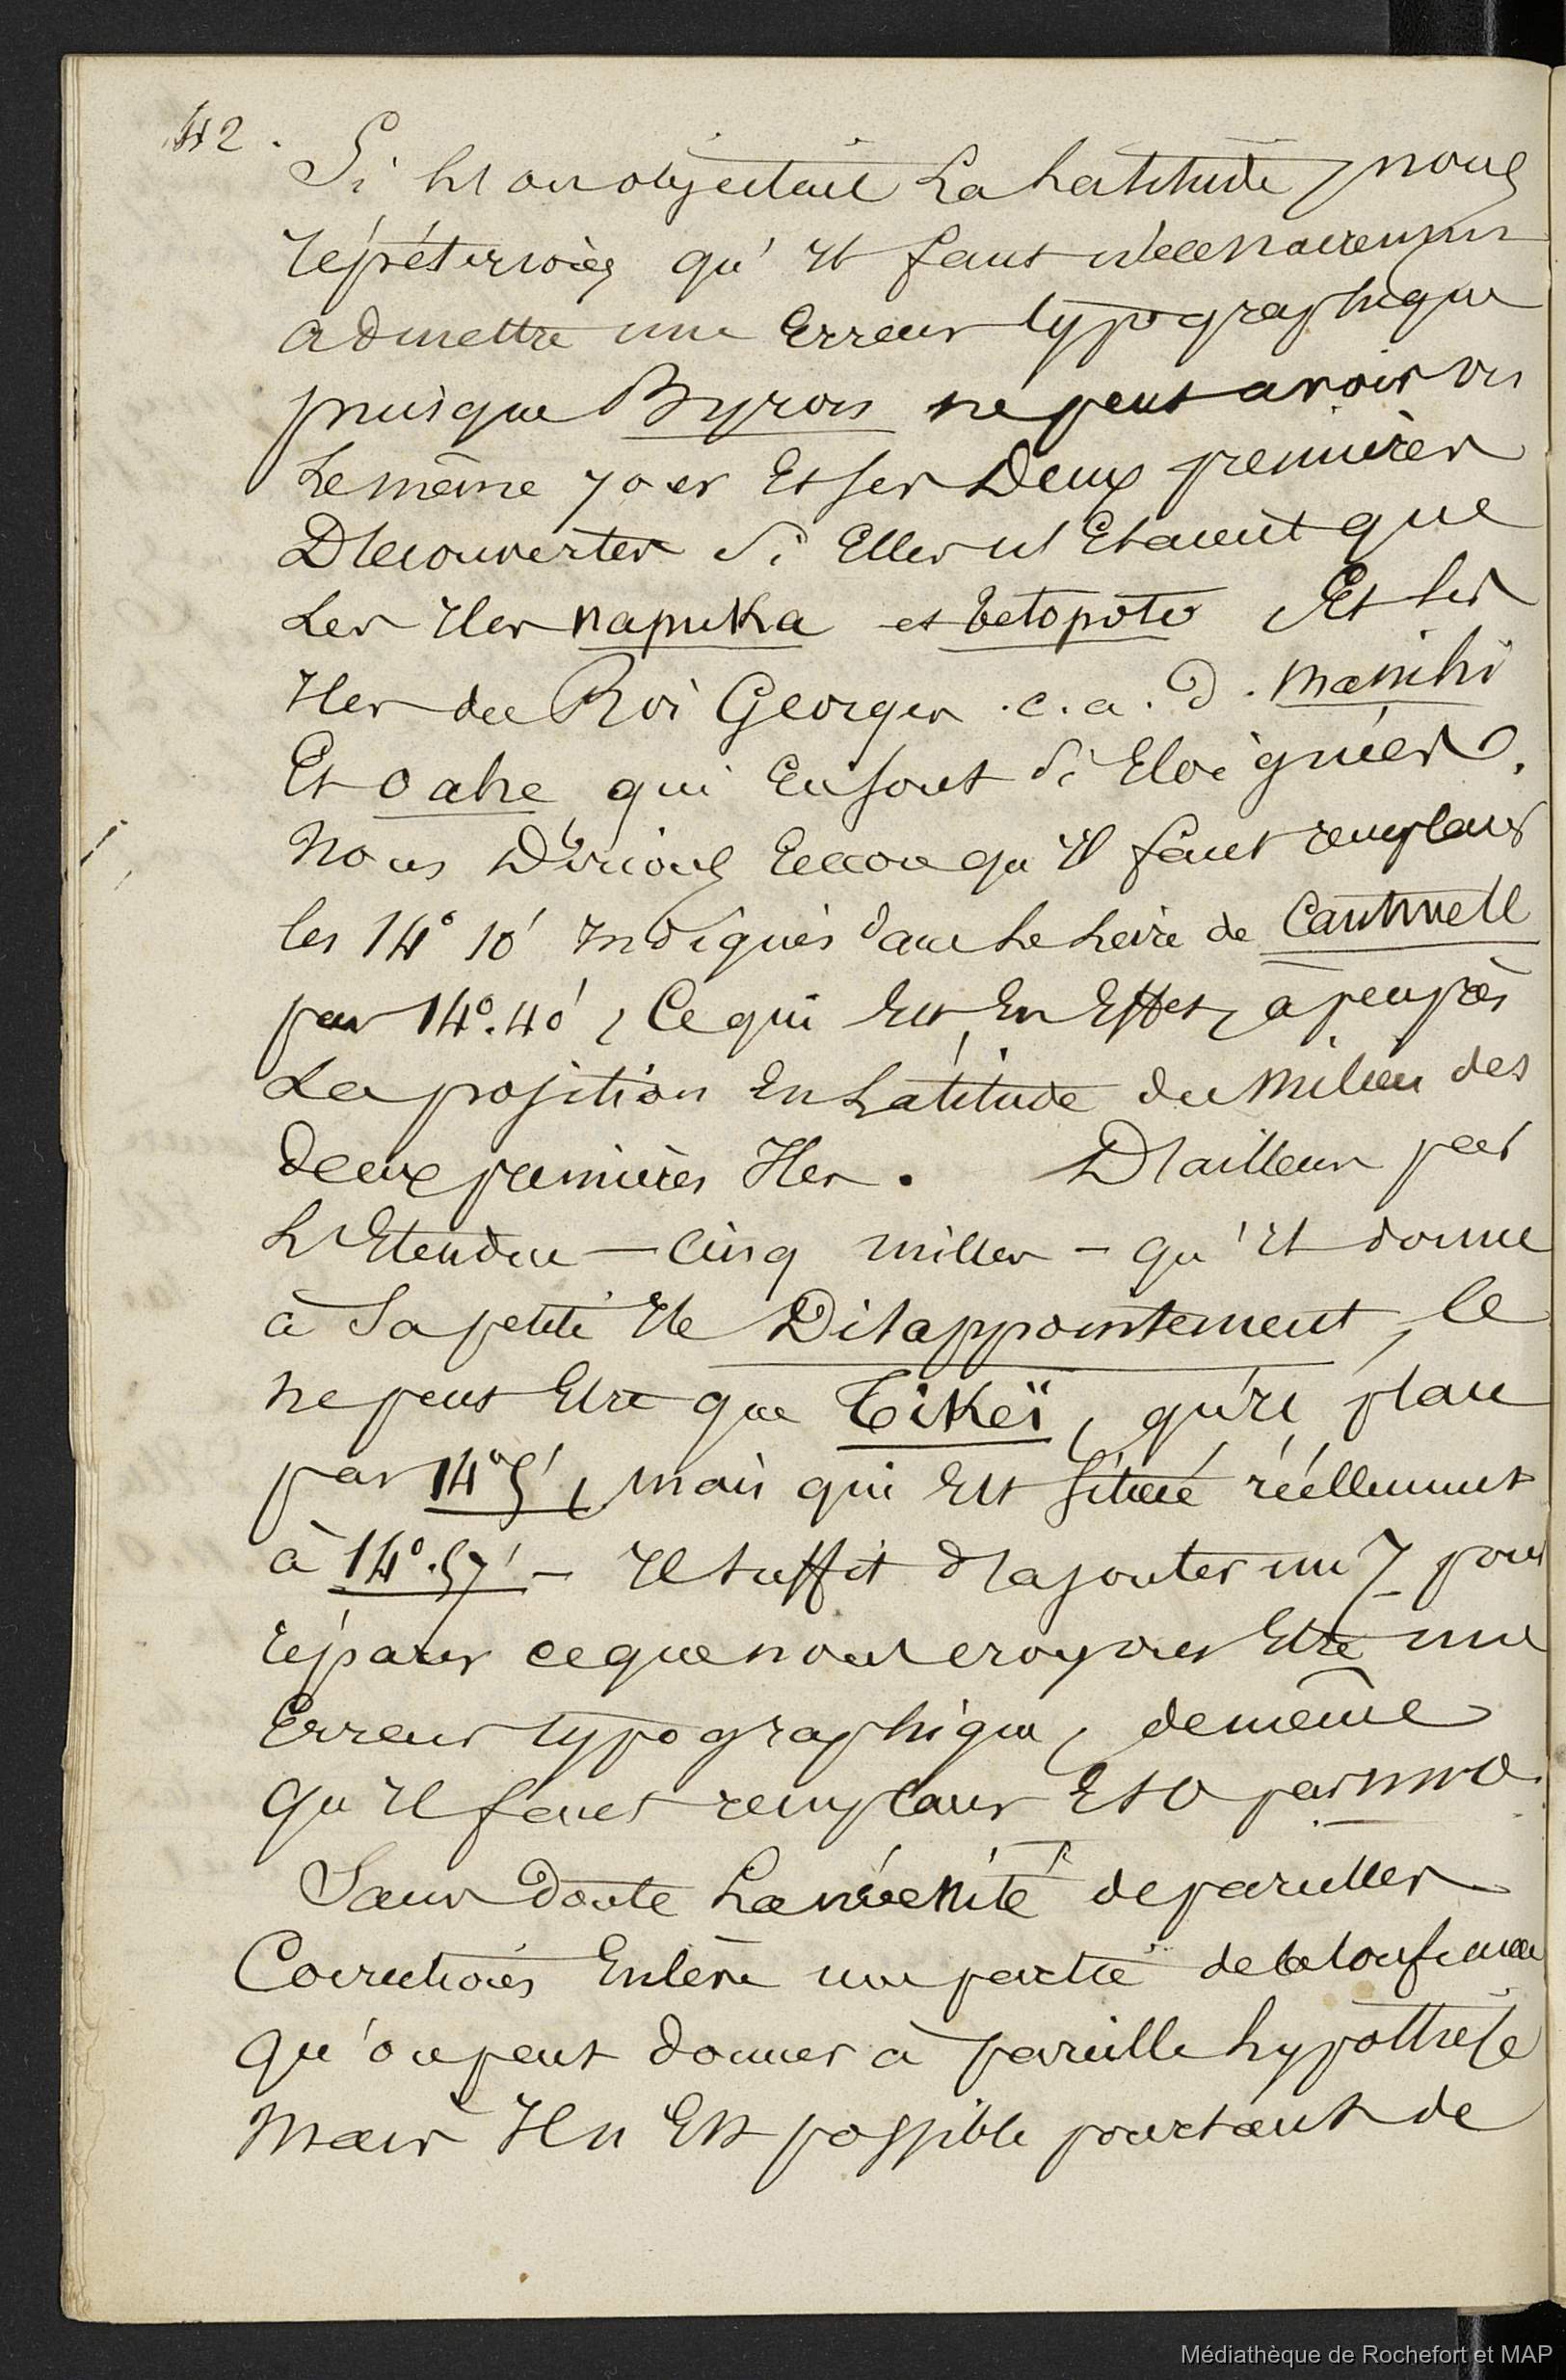 42.
Si l'on objectait La Latitude, nous
répéterions qu'il faut nécessairement
admettre une Erreur typographique
puisque Byron ne peut avoir vu
Le même jour Et ses Deux premières
Découvertes si Elles n'Etaient que
Les Iles napuka et tetopoto Et les
Iles du Roi Georges .c.a.d. Manihi
Et oahe qui En sont si Eloignées.
Nous Dirions Encore qu'il faut remplacer
les 14° 10' Indiqués dans Le Livre de Cantwell
par 14°.40', Ce qui Est, En Effet, à peu près
La position En Latitude du Milieu des
deux premières Iles. D'ailleurs par
L'Etendue — Cinq milles — qu'il donne
à Sa petite Ile Disappointement, Ce
ne peut Etre que Tikeï, qu'il place
par 14°5', mais qui Est située réellement
à 14°.57' — Il suffit d'ajouter un 7 pour
réparer ce que nous croyons Etre une
Erreur typographique, de même
qu'il faut remplacer Est par
Sans Doute La nécessité de pareilles
Corrections Enlève une partie de la confiance
qu'on peut donner à pareille hypothèse
Mais Il n'Est possible pourtant de
Médiathèque de Rochefort et MAP